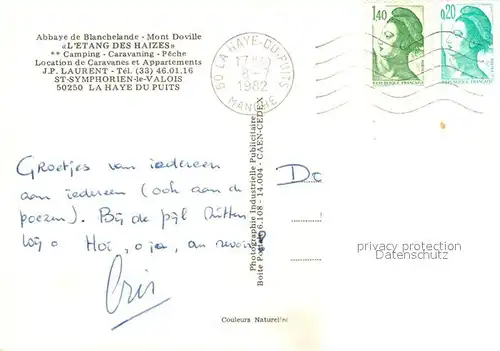 Abbaye de Blanchelande - Mont Doville
«L'ETANG DES HAIZES»
** Camping - Caravaning - Pêche
Location de Caravanes et Appartements
J.P. LAURENT - Tél. (33) 46.01.16
ST-SYMPHORIEN-le-VALOIS
50250 LA HAYE DU PUITS
50 LA HAYE-DU-PUITS
8-7
1982
MANCHE
1,40
REPUBLIQUE FRANÇAISE
0,20
REPUBLIQUE FRANÇAISE
Groetjes van iedereen
aan iedereen (ook aan de
poezen). Bij de pijl zitten
wij. Hoi, oja, au revoir!
Cris
Photographie Industrielle Publicitaire
Boite Postale 6.108 - 14.004 - CAEN-CEDEX
Do
privacy protection
Datenschutz
Couleurs Naturelles